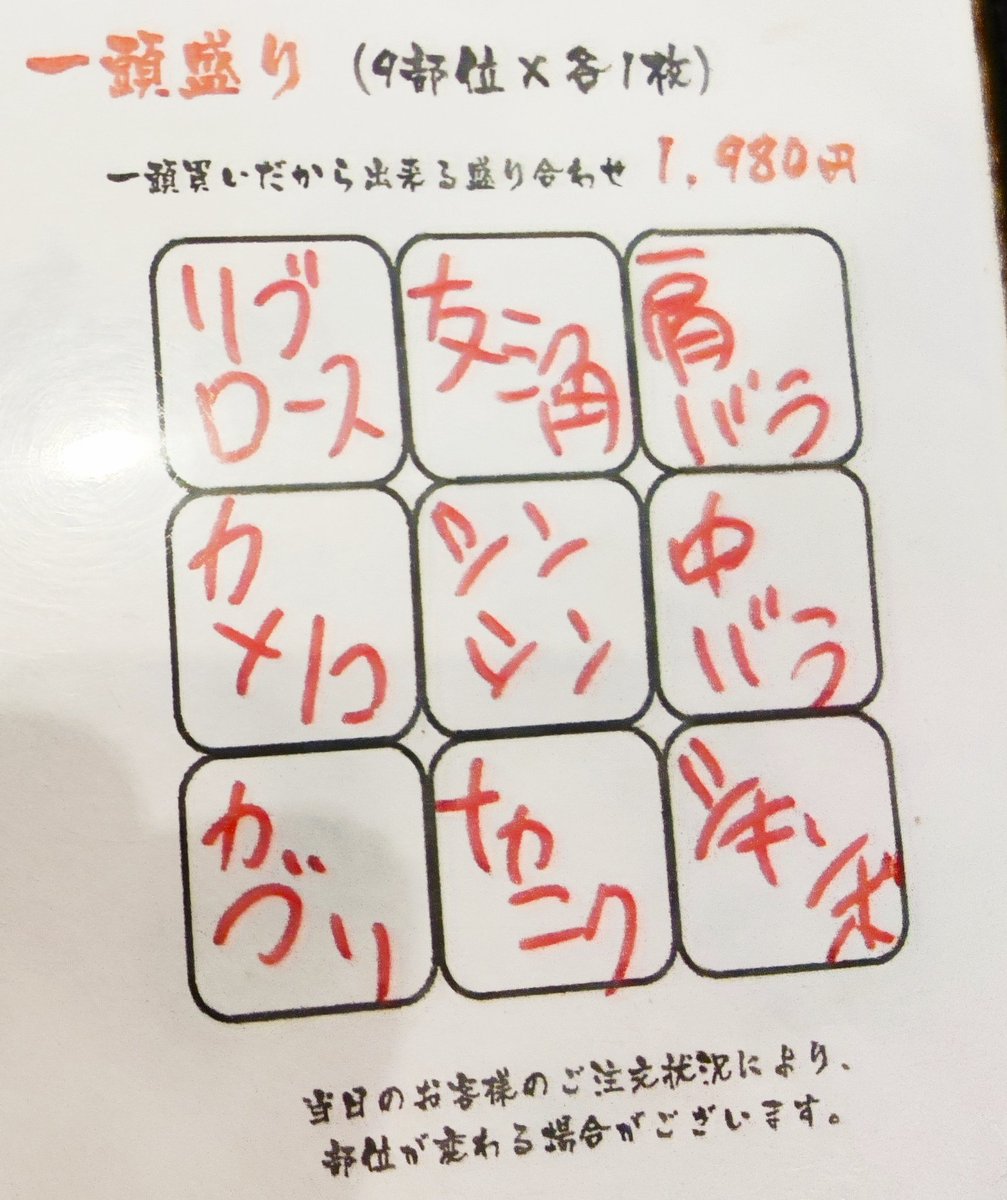 一頭盛り (9部位×各1枚)
一頭買いだから出来る盛り合わせ 1,980円
リブ
ロース
友三角
肩
バラ
カ
メノコ
シン
シン
中
バラ
カ
ブリ
ナカ
ニク
当日のお客様のご注文状況により、
部位が変わる場合がございます。